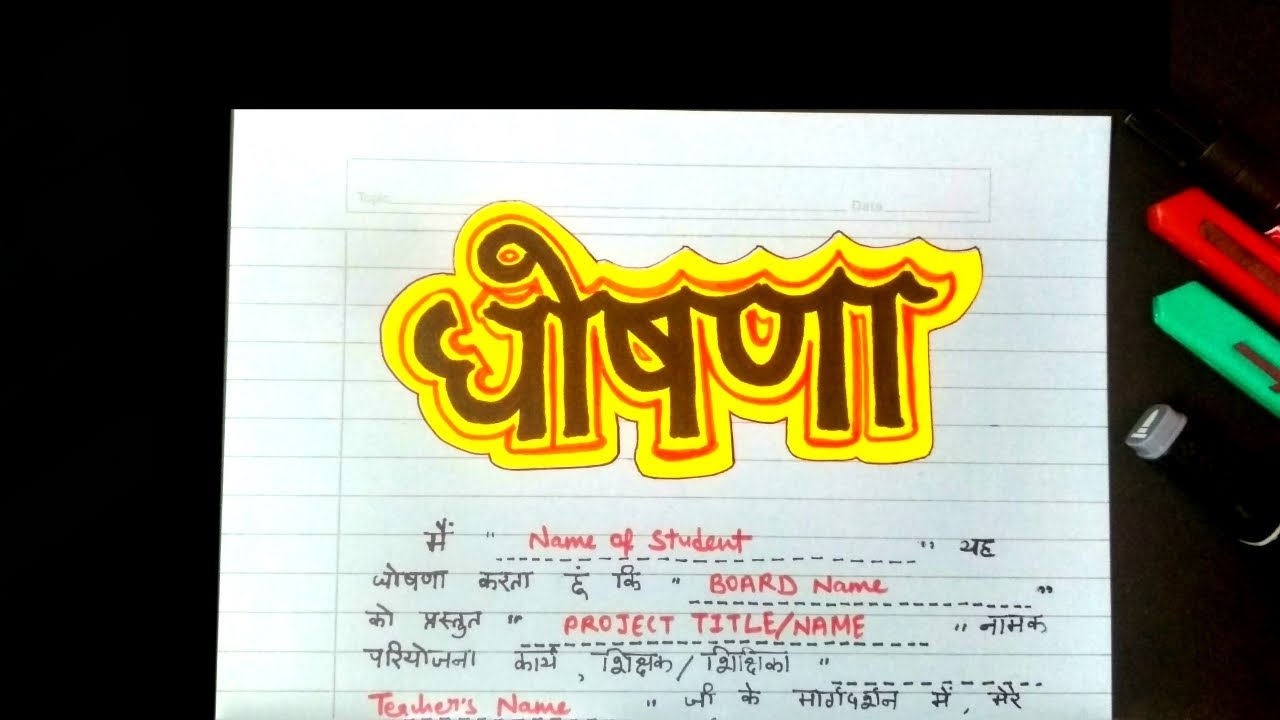 Topic Date
घोषणा
मैं " Name of Student " यह
घोषणा करता हूं कि " BOARD Name "
को प्रस्तुत " PROJECT TITLE/NAME " नामक
परियोजना कार्य , शिक्षक / शिक्षिका "
Teacher's Name " जी के मार्गदर्शन में, मेरे